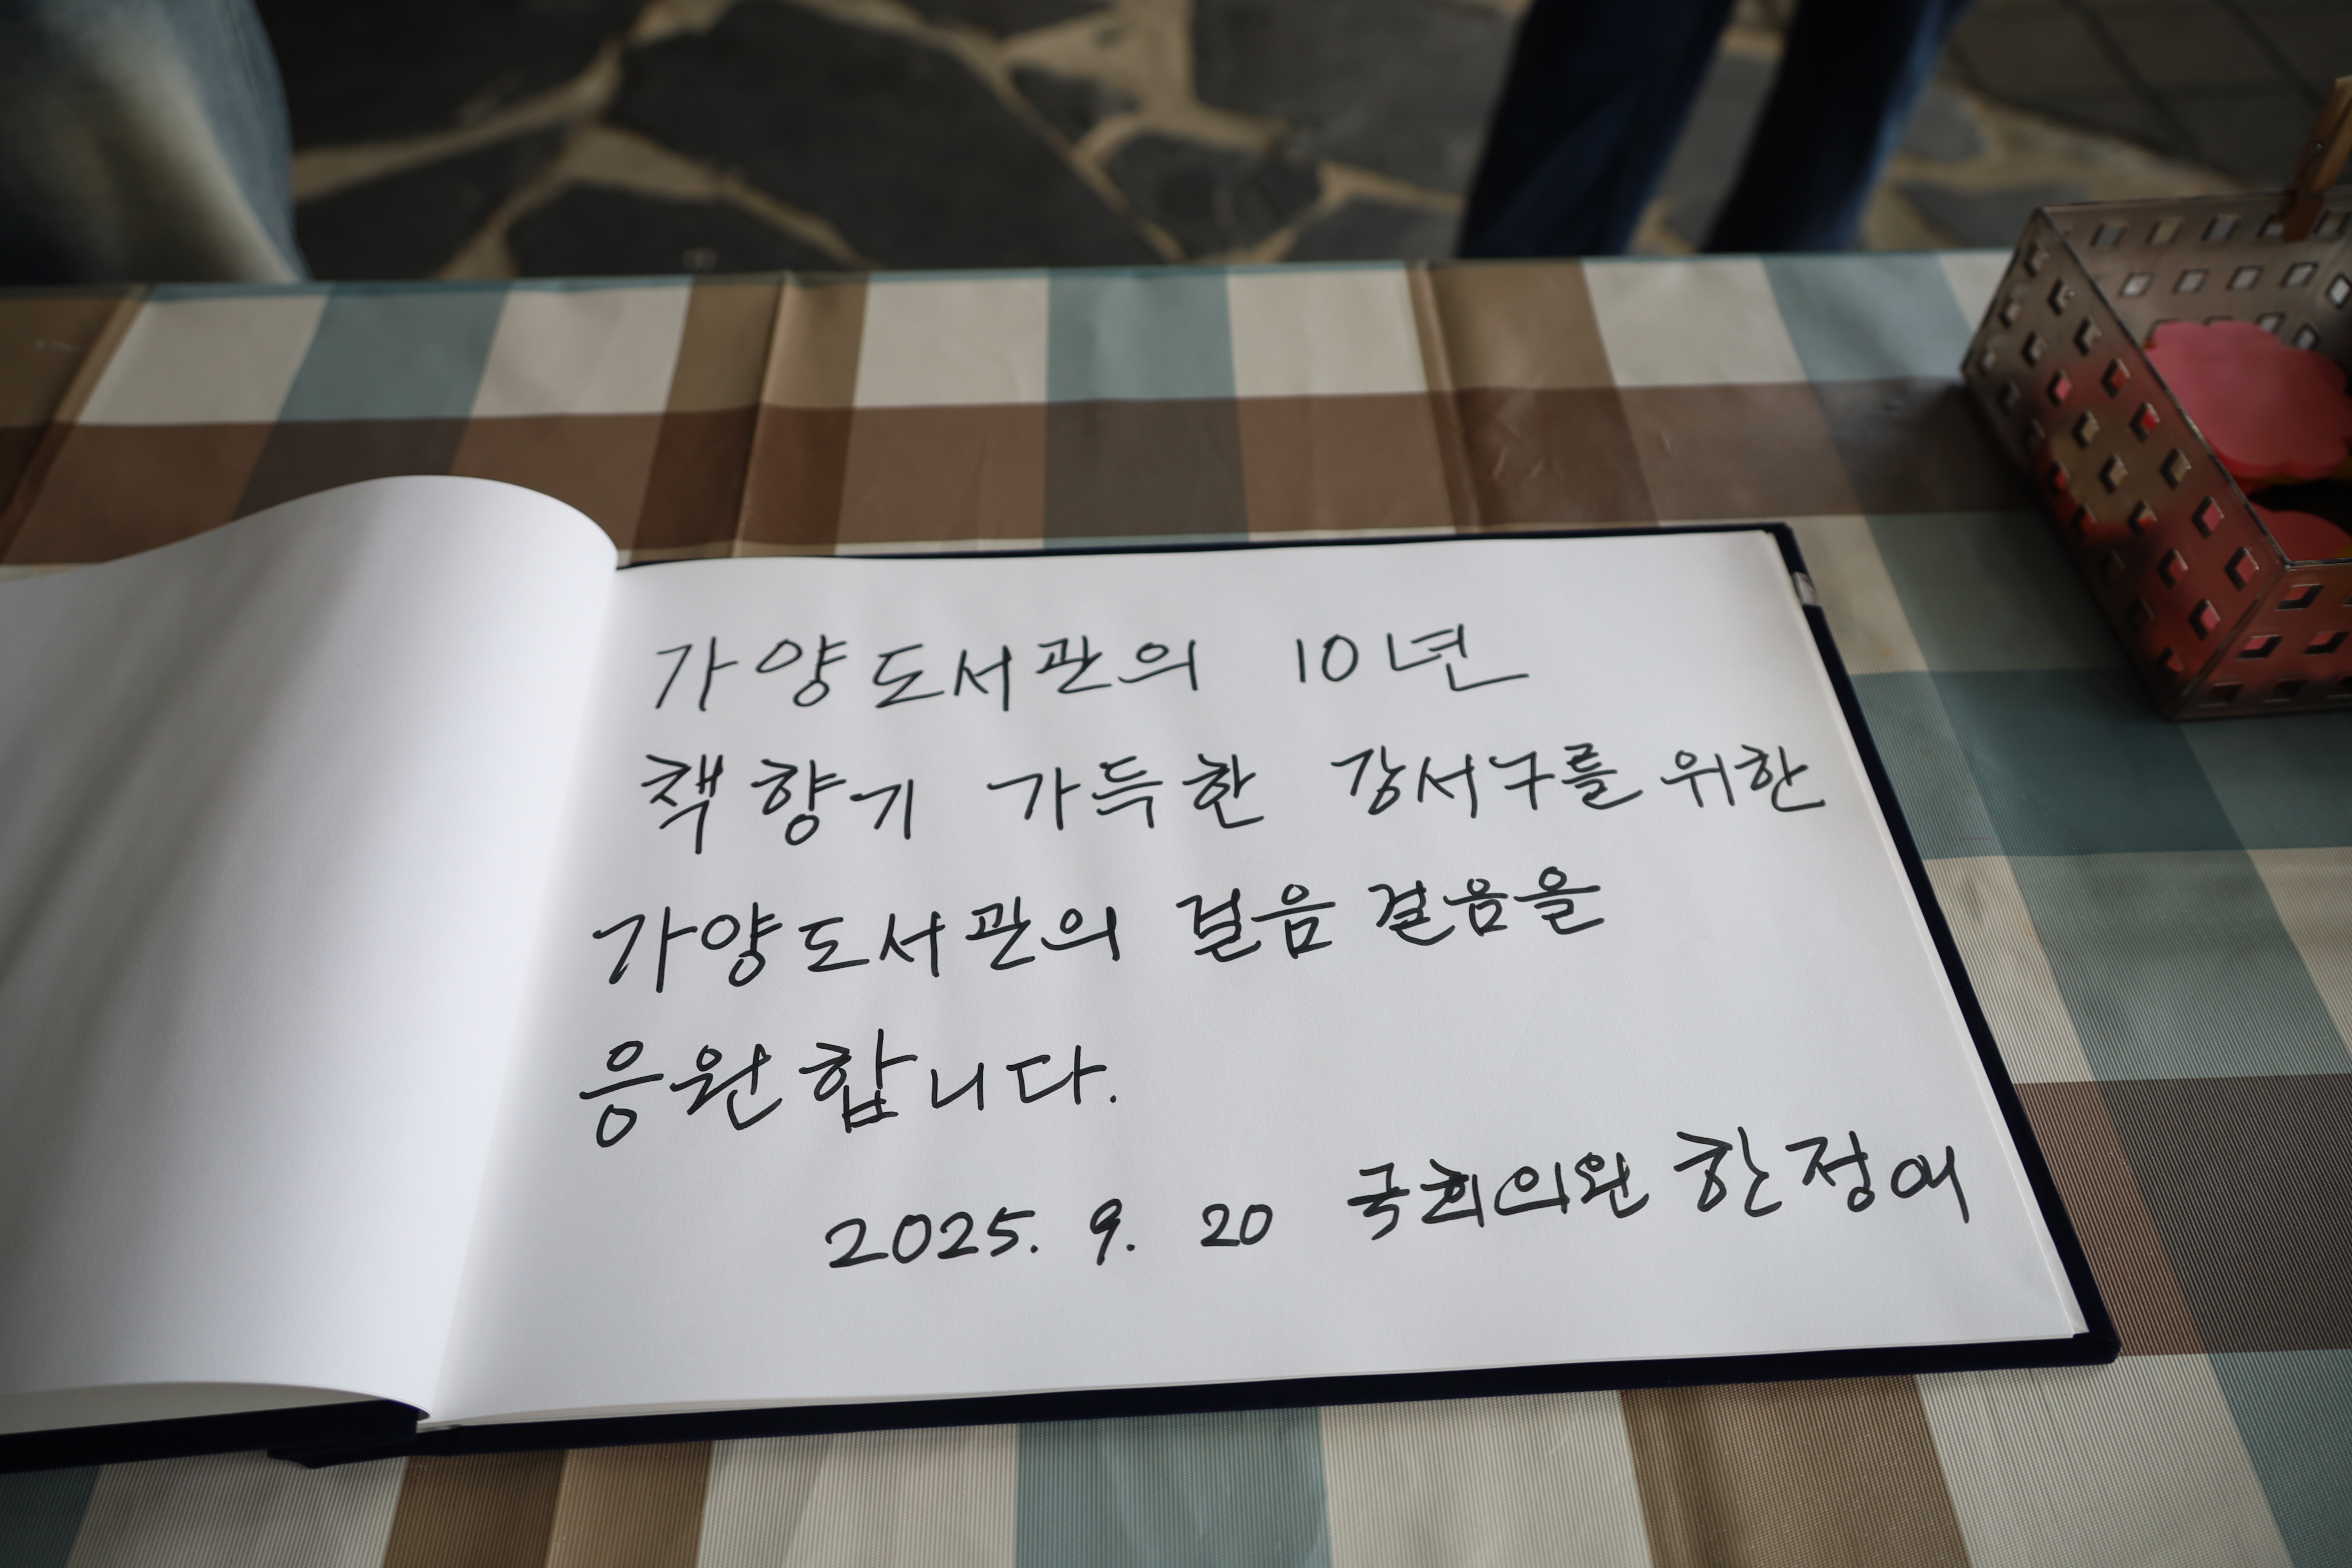 가양도서관의 10년
책 향기 가득한 강서구를 위한
가양도서관의 걸음 걸음을
응원합니다.
2025. 9. 20 국회의원 한정애